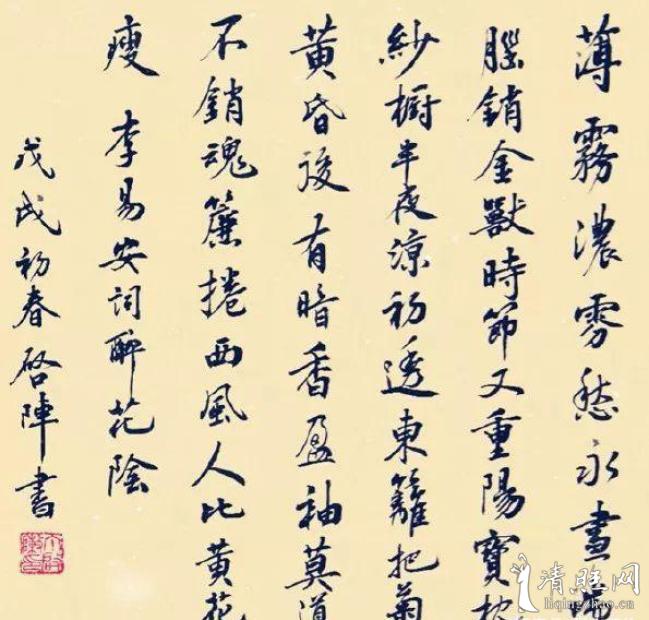 薄霧濃雰愁永晝瑞
腦銷金獸時節又重陽寶枕
紗橱半夜涼初透東籬把菊
黃昏後有暗香盈袖莫道
不銷魂簾捲西風人比黃花
瘦 李易安詞醉花陰
戊戌初春啓陣書
清照网